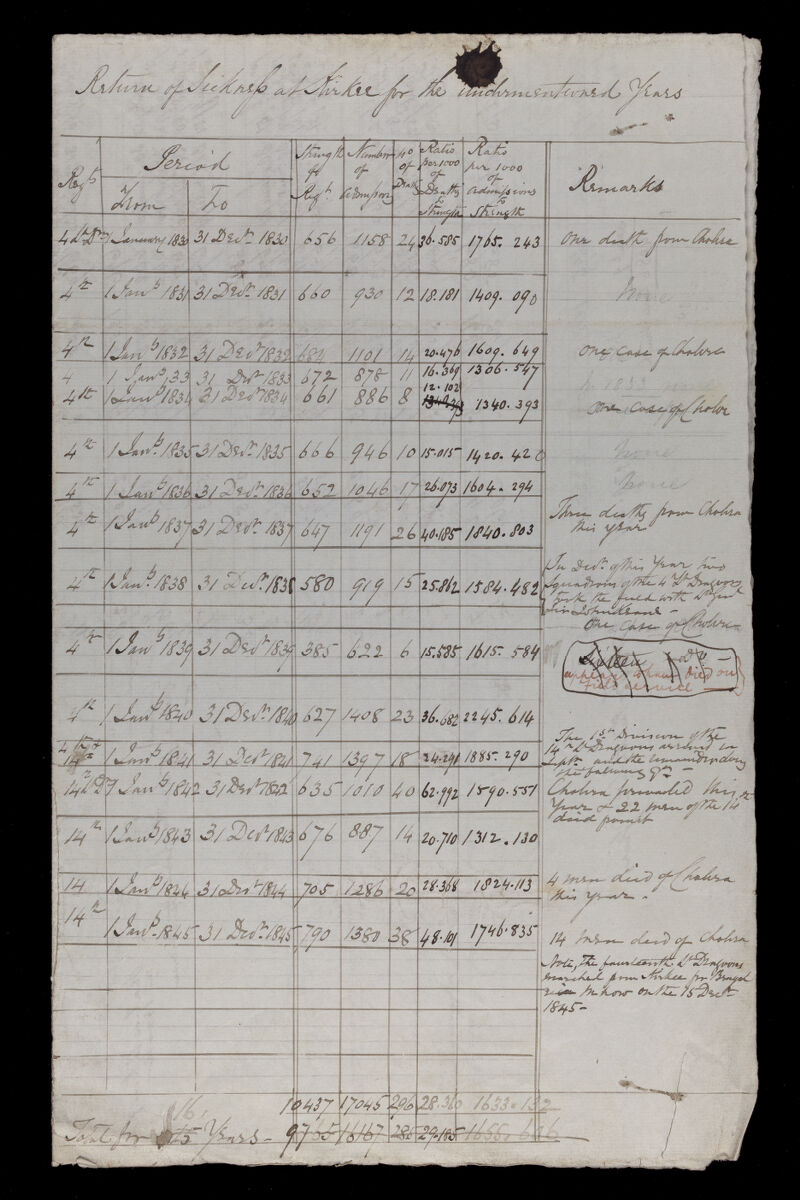 Return of Sickness at Kirkee for the undermentioned Years
Regt Period Strength of Regt. Number of admissions No of Deaths Ratio per 1000 of Deaths to Strength Ratio per 1000 of admissions to Strength Remarks
From To
4 Lt Drs 1 January 1830 31 Decr. 1830 656 1158 24 36.585 1765.243 One death from Cholera
4th 1 Jany 1831 31 Decr. 1831 660 930 12 18.181 1409.090 None
4th 1 Jany 1832 31 Decr 1832 1101 14 20.476 1609.649 One case of Cholera
4 1 Jany, 33 31 Decr 1833 672 878 11 16.369 1306.547
4th 1 Jany 1834 31 Decr 1834 661 886 8 12.102 1340.393 One case of Cholr
4th 1 Jany. 1835 31 Decr. 1835 666 946 10 15.015 1420.420 None
4th 1 Jany 1836 31 Decr. 1836 652 1046 17 26.073 1604.294 None
4th 1 Jany 1837 31 Decr. 1837 647 1191 26 40.185 1840.803 Three deaths from Cholera
this year
4th 1 Jany. 1838 31 Decr. 1838 580 919 15 25.862 1584.482 In Decr. of this Year two
Squadrons of the 4th Lt Dragoons
took the field with Lt Genl
Sir John Keane -
One case of Cholera
4th 1 Jany 1839 31 Decr 1839 385 622 6 15.585 1615.584
appears to have died on
field service
4th 1 Jany 1840 31 Decr 1840 627 1408 23 36.682 2245.614
4th & 14th 1 Jany 1841 31 Decr 1841 741 1397 18 24.291 1885.290 The 1st Division of the
14th Lt Dragoons arrived in
Septr. and the remainder during
the following
14th Lt D 1 Jany 1842 31 Decr 1842 635 1010 40 62.992 1590.551 Cholera prevailed this
Year & 22 men of the 14th
died from it
14th 1 Jany 1843 31 Decr 1843 676 887 14 20.710 1312.130
14 1 Jany 1844 31 Decr 1844 705 1286 20 28.368 1824.113 4 men died of Cholera
this Year -
14th 1 Jany. 1845 31 Decr. 1845 790 1380 38 48.101 1746.835 14 men died of Cholera
Note, The fourteenth Lt Dragoons
marched from Kirkee for Bengal
via Mhow on the 15 Decr
1845 -
16, 10437 17045 296 28.360 1633.132
Total for 15 Years - 9765 16167 285 29.185 1655.606